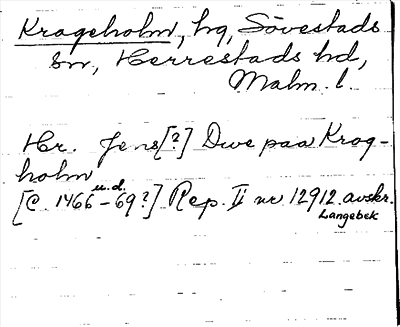 Krageholm, hg, Sövestads
sn, Herrestads hd,
Malm. l.
Hr. Jens [?] Dwe paa Krog-
holm
u.d.
[C. 1466-69?] Rep. II nr 12912. avskr.
Langebek